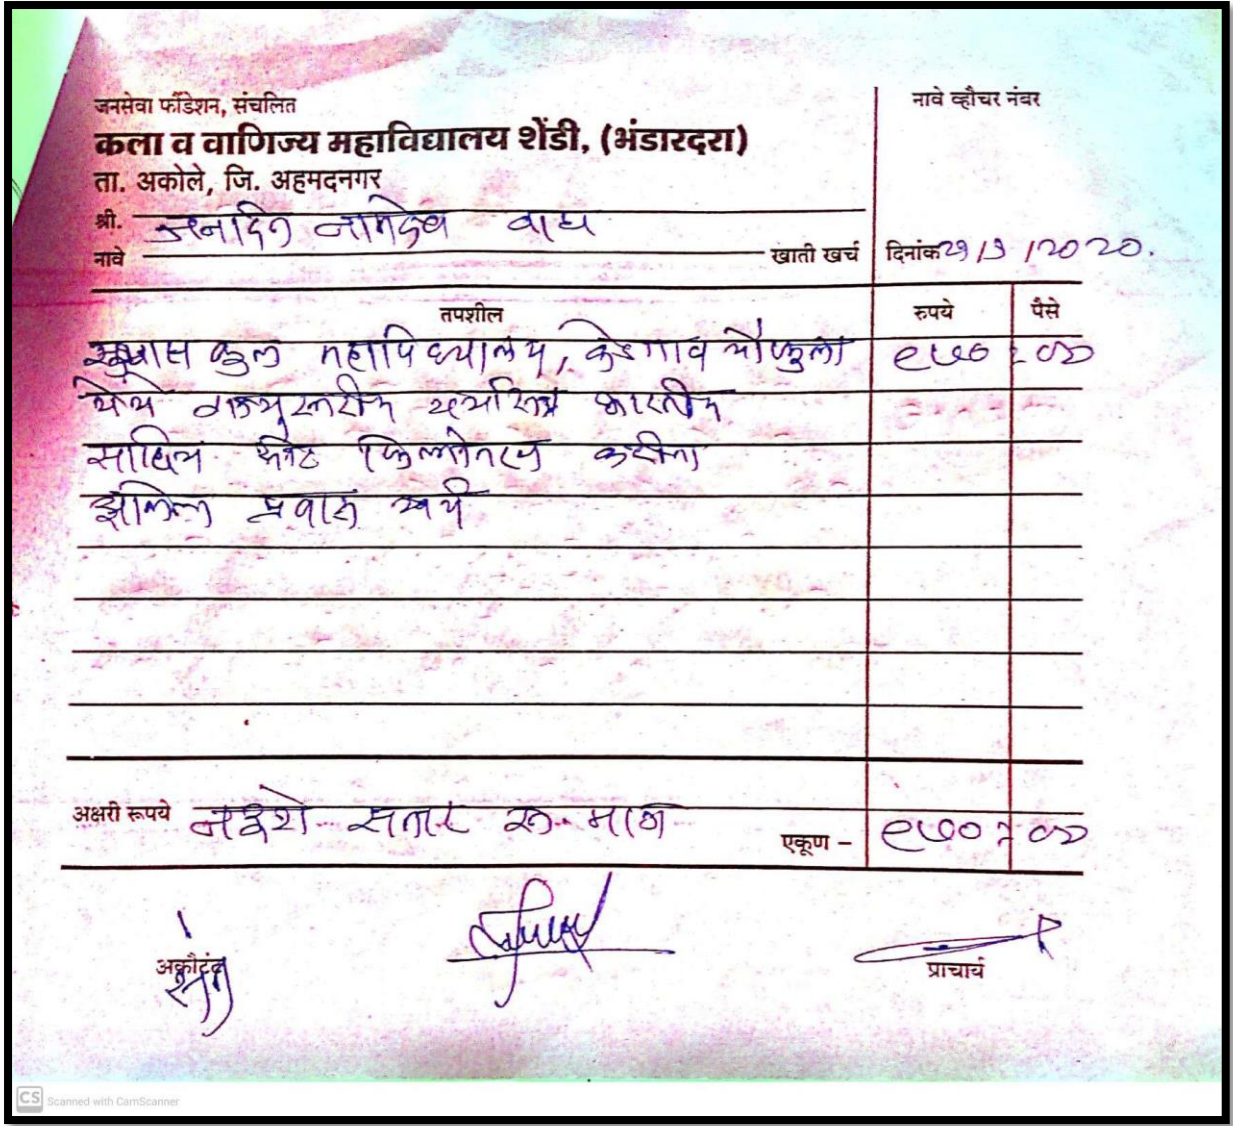 जनसेवा फौंडेशन, संचलित
नावे व्हौचर नंबर
कला व वाणिज्य महाविद्यालय शेंडी, (भंडारदरा)
ता. अकोले, जि. अहमदनगर
श्री. जनार्दन नामदेव वाघ
नावे खाती खर्च
दिनांक /2020.
तपशील रुपये पैसे
सुभाष कुल महाविद्यालय, केडगाव चौफुला ९७० = ००
येथे राज्यस्तरीय चर्चासत्र भारतीय
साहित्य करीता
झालेला प्रवास खर्च
अक्षरी रूपये नऊशे सत्तर रू. मात्र
एकूण – ९७० = ००
अकौटंट
प्राचार्य
CS Scanned with CamScanner